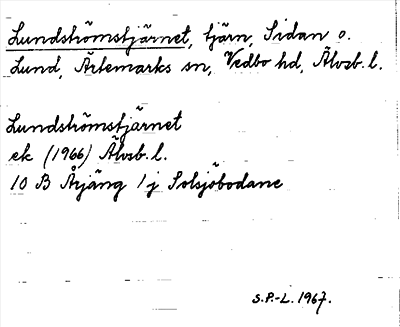 Lundströmstjärnet, tjärn, Sidan o.
Lund, Ärtemarks sn, Vedbo hd, Älvsb. l.
Lundströmstjärnet
ek (1966) Älvsb. l.
10 B Årjäng 1 j Solsjöbodane
S.P.-L. 1967.